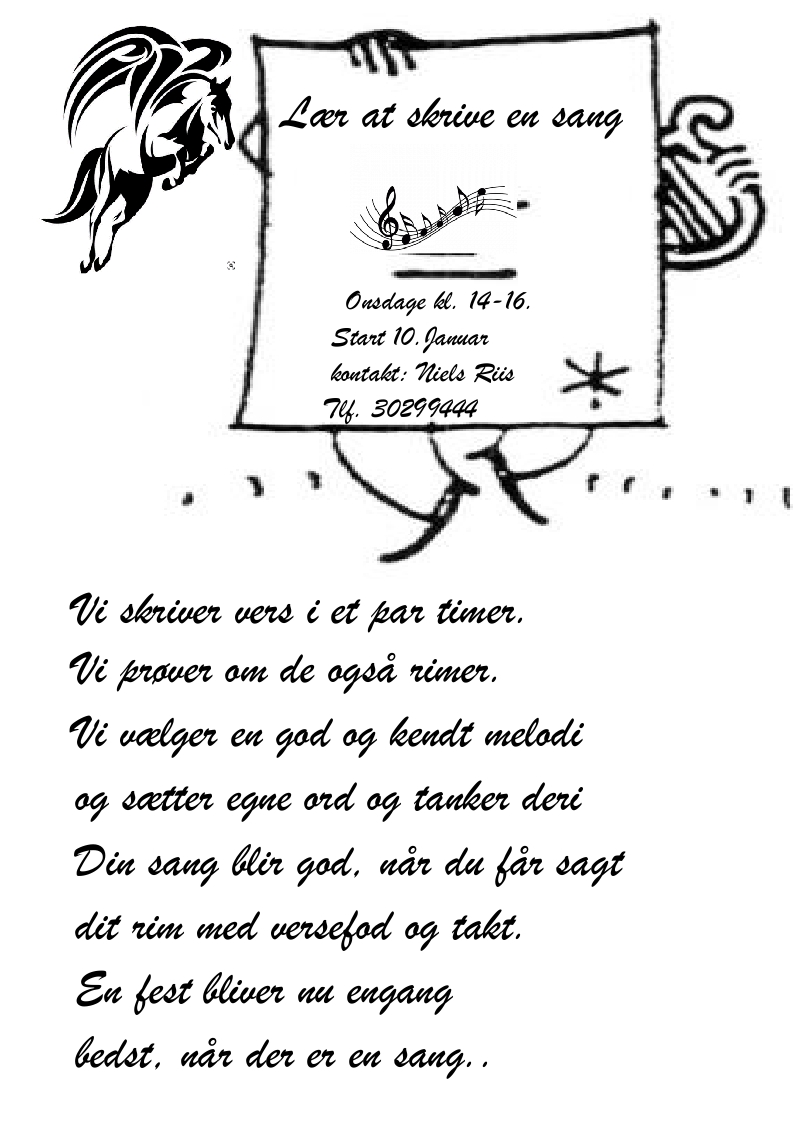 Lær at skrive en sang
Onsdage kl. 14-16.
Start 10. Januar
kontakt: Niels Riis
Tlf. 30299444
Vi skriver vers i et par timer.
Vi prøver om de også rimer.
Vi vælger en god og kendt melodi
og sætter egne ord og tanker deri
Din sang blir god, når du får sagt
dit rim med versefod og takt.
En fest bliver nu engang
bedst, når der er en sang..